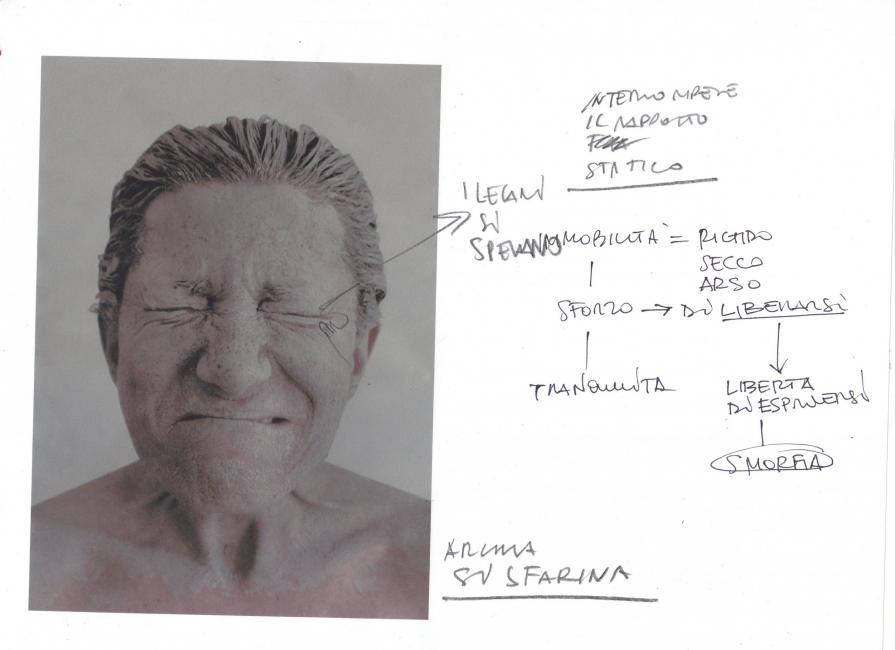 INTERROMPERE
IL RAPPORTO
STATICO
I LEGAMI
SI
IMMOBILITÀ = RIGIDO
SECCO
ARSO
SFORZO → DI LIBERARSI
TRANQUILLITA
LIBERTA
DI ESPRIMERSI
SMORFIA
ARGILLA
SI SFARINA